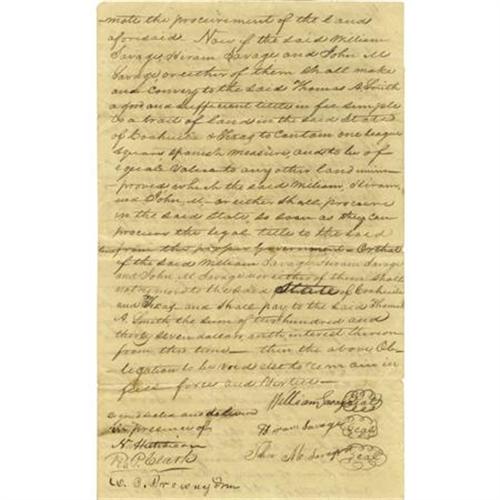 mote the procurement of the land
aforesaid Now if the said William
Savage, Hiram Savage and John M
Savage, or either of them shall make
and convey to the said Thomas A. Smith
a good and sufficient title in fee simple
to a trait of land in the said State
of Coahuila & Texas to contain one league
square, Spanish measure, and to be of
equal value to any other land unim-
proved which the said William, Hiram,
and John, M. or either shall procure
in the said State, so soon as they can
procure the legal title to the said
from the proper Government - Or that
if the said William Savage Hiram Savage
and John M Savage or either of them shall
not remove to the said State of Coahuila
and Texas and shall pay to the said Thomas
A. Smith the sum of two hundred and
thirty seven dollars, with interest thereon
from this time - then the above Ob-
ligation to be void else to remain in
full force and virtue -
and delivered
in presence of
N. Hutchison
R. P. Clark
W. B.
William Savage Seal
Hiram Savage Seal
John M. Savage Seal